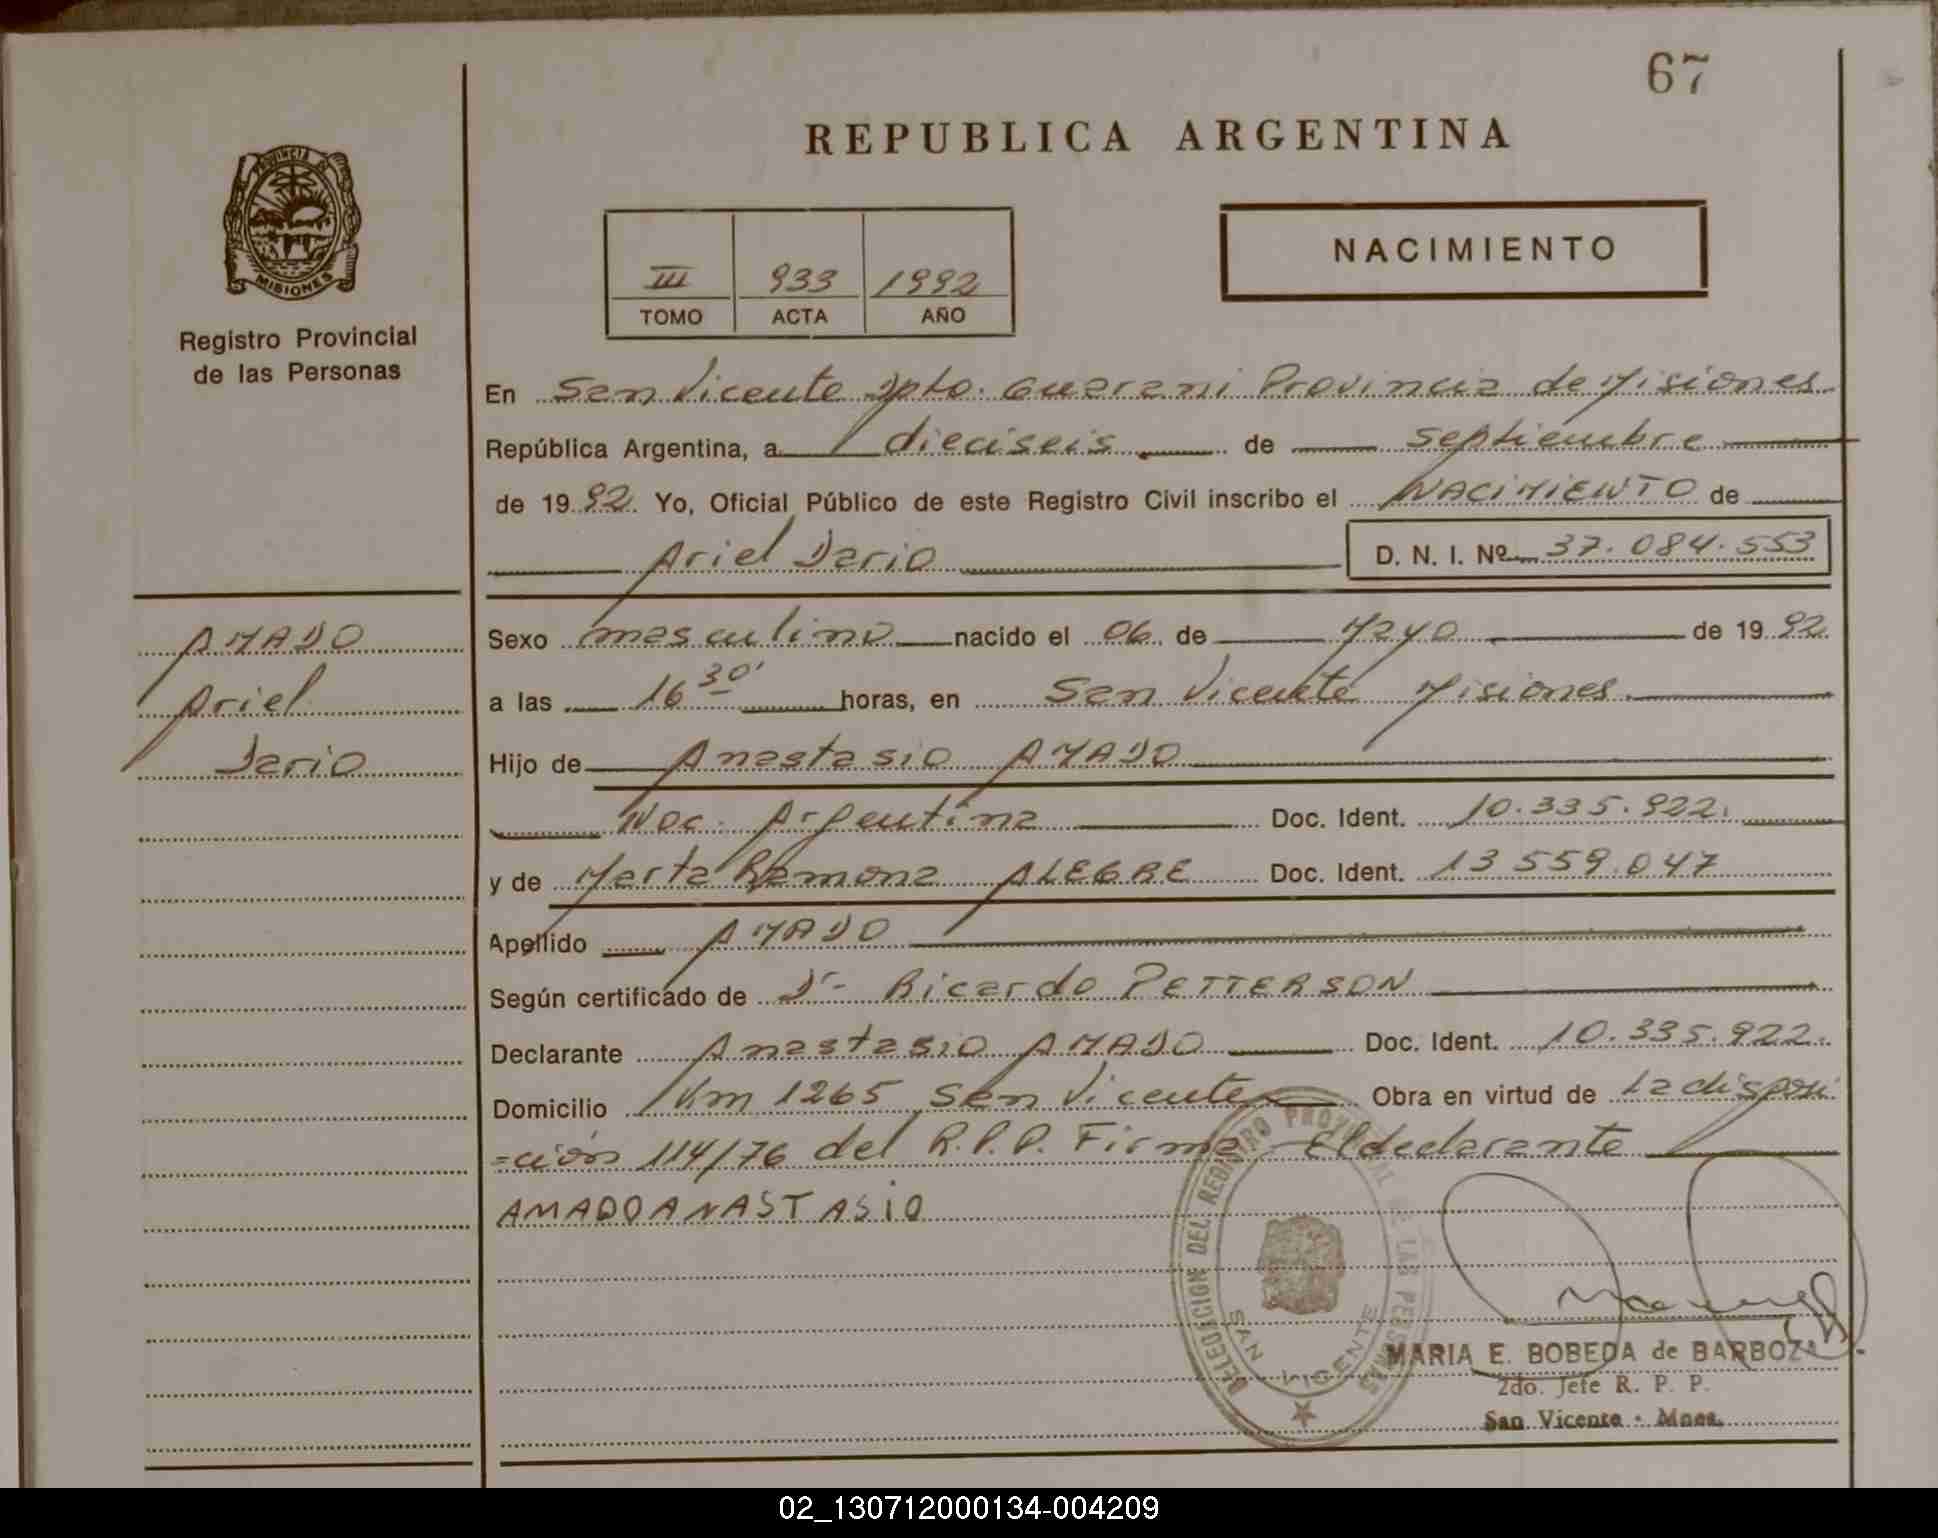 67
REPUBLICA ARGENTINA
PROVINCIA DE
MISIONES
Registro Provincial
de las Personas
NACIMIENTO
III 933 1992
TOMO ACTA AÑO
En San Vicente Dpto. Guarani Provincia de Misiones
República Argentina, a dieciseis de septiembre
de 1992. Yo, Oficial Público de este Registro Civil inscribo el NACIMIENTO de
Ariel Dario D. N. I. Nº 37.084.553
AMADO
Ariel
Dario
Sexo masculino nacido el 06 de Mayo de 1992
a las 16 30' horas, en San Vicente Misiones
Hijo de Anastasio AMADO
Nac. Argentina Doc. Ident. 10.335.922.
y de Marta Ramona ALEGRE Doc. Ident. 13 559.047
Apellido AMADO
Según certificado de Dr- Ricardo PETTERSON
Declarante Anastasio AMADO Doc. Ident. 10.335.922.
Domicilio Km 1265 San Vicente Obra en virtud de La disposi
=ción 114/76 del R.P.P. Firma - El declarante
AMADO ANASTASIO
DELEGACION DEL REGISTRO PROVINCIAL DE LAS PERSONAS
SAN VICENTE
MARIA E. BOBEDA de BARBOZA
2do. Jefe R. P. P.
San Vicente - Mnes.
02_130712000134-004209